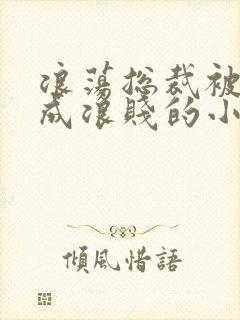 浪蕩总裁被
成浪賤的小
傾風惜語